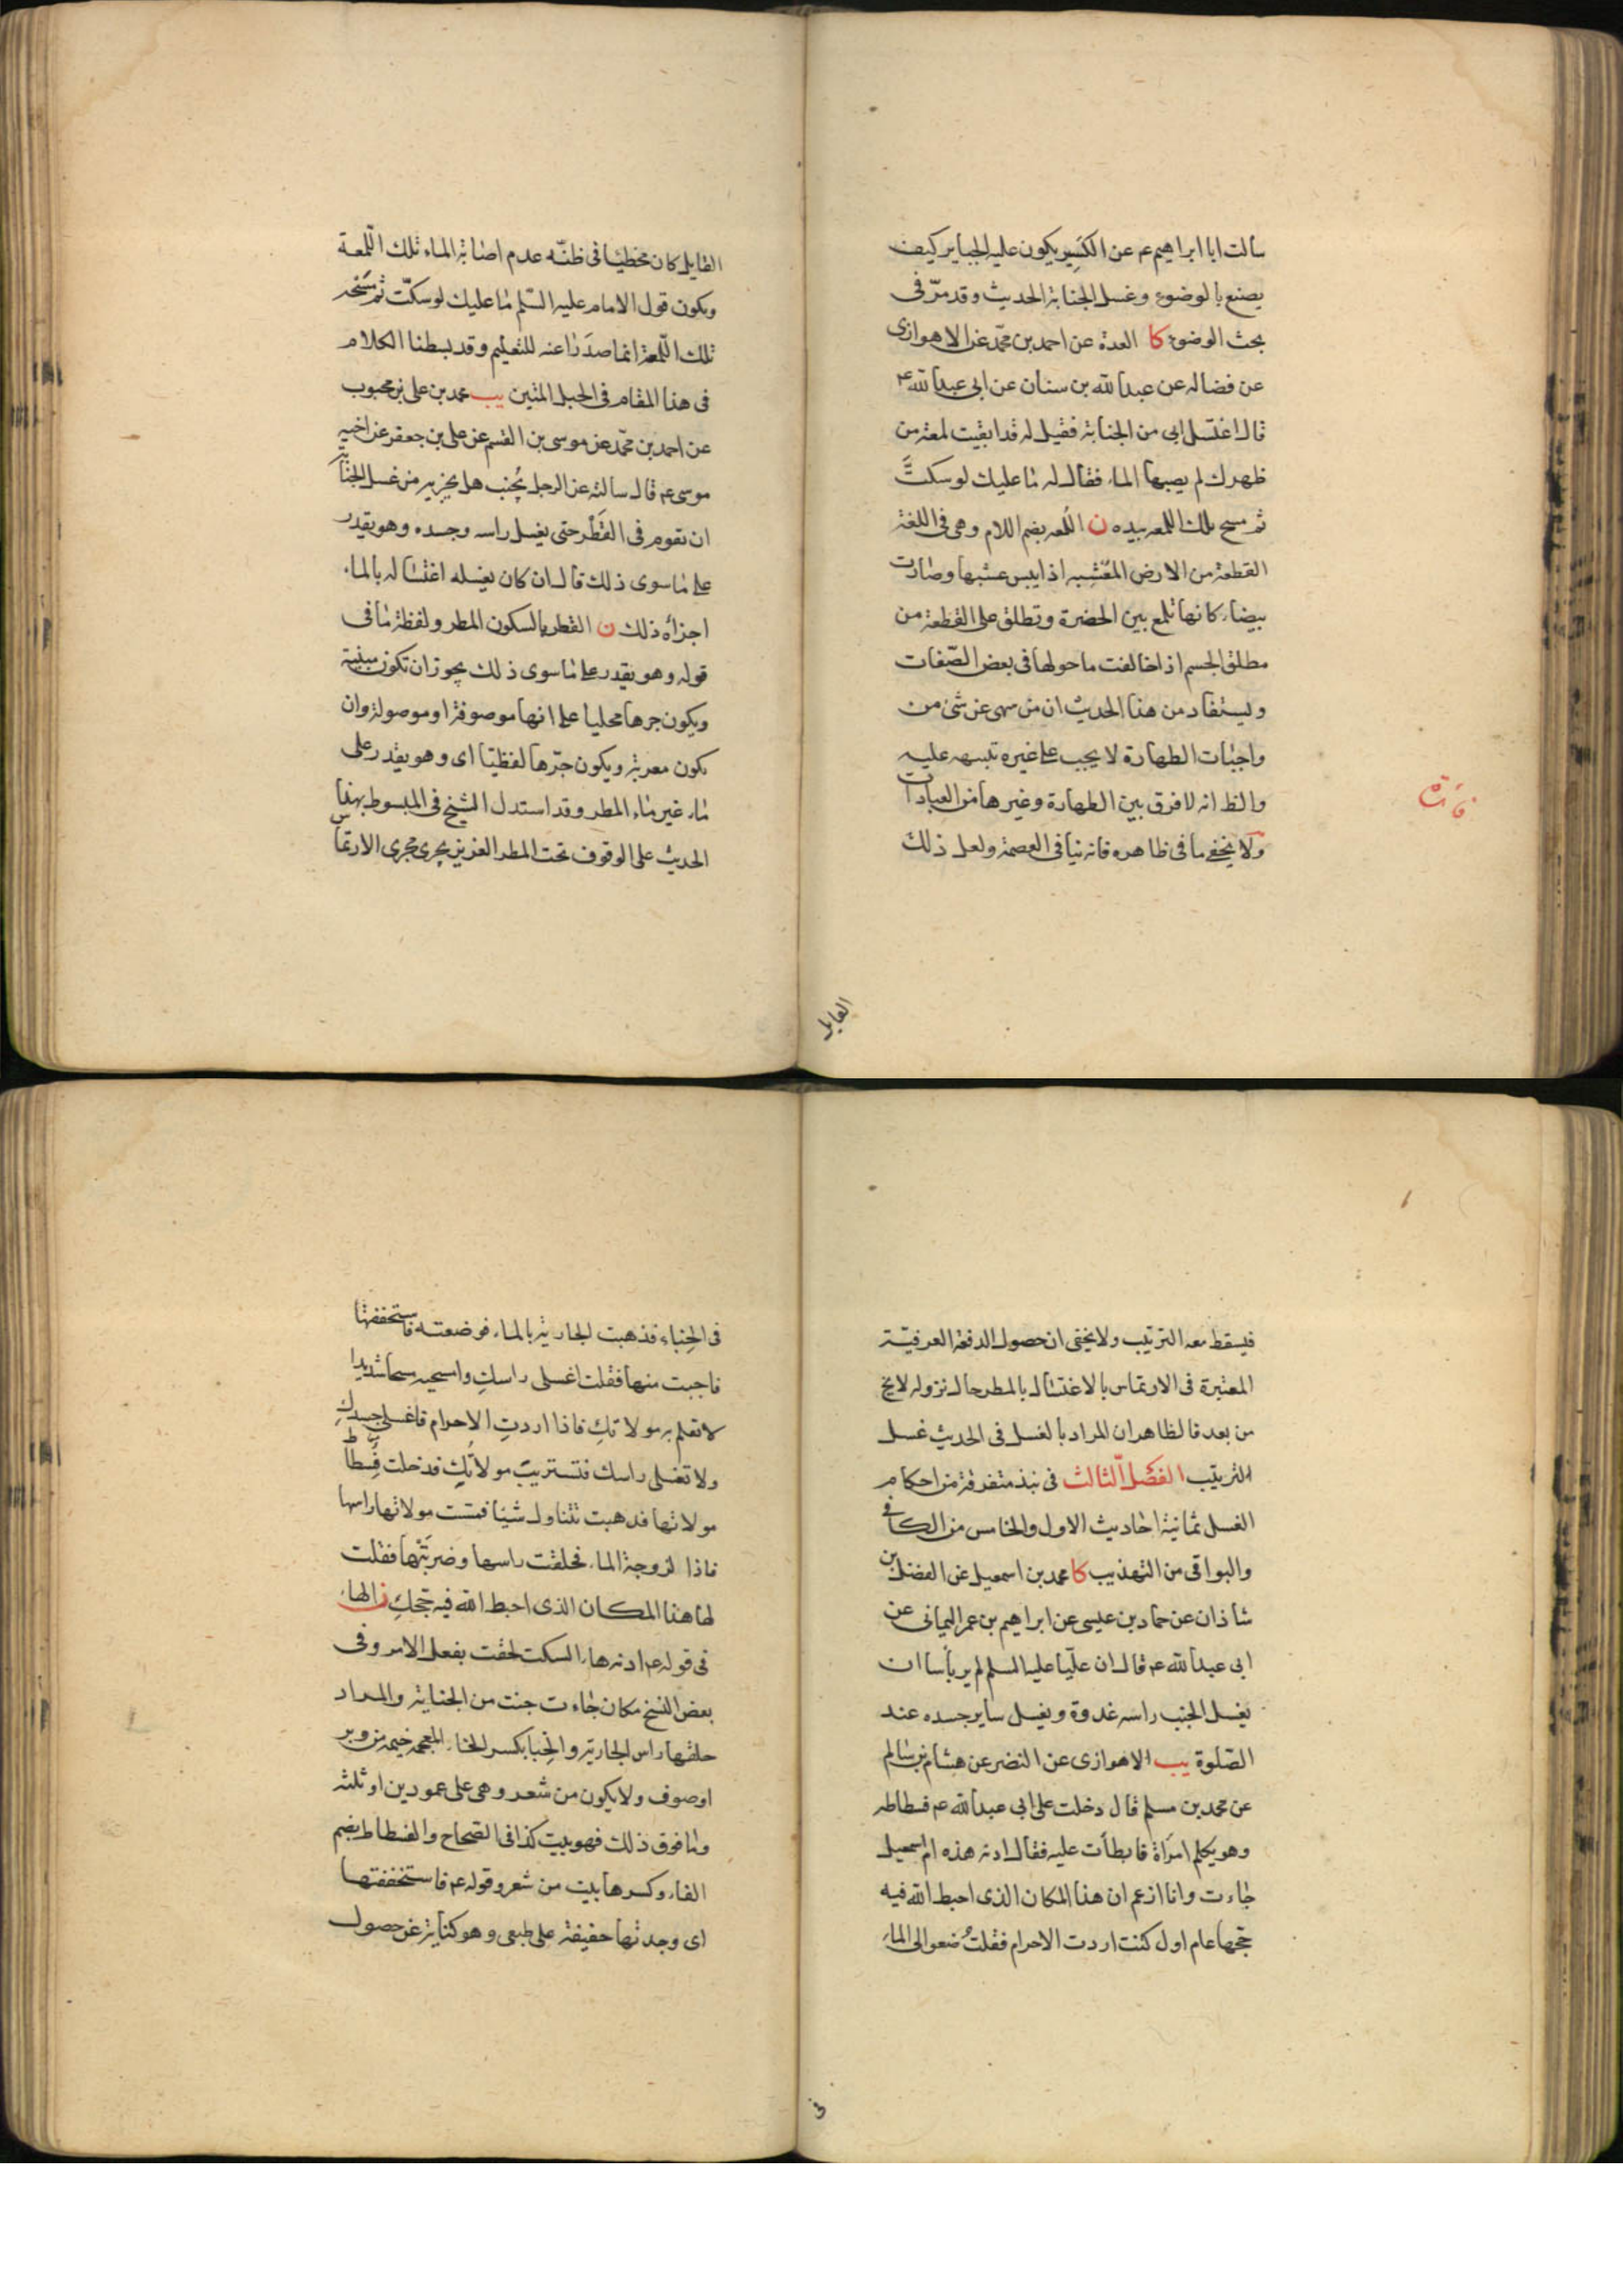 سالت ابا ابراهيم ع عن الكسير يكون عليه الجباير كيف
يصنع بالوضوء وغسل الجنابة الحديث وقد مرّ في
بحث الوضوء كا العدة عن احمد بن محمّد عن الاهوازى
عن فضاله عن عبدالله بن سنان عن ابى عبدالله ع
قال اغتسل ابى من الجنابة فقيل له قد ابقيت لمعة من
ظهرك لم يصبها الماء فقال له ما عليك لو سكتَّ
ثم مسح تلك اللمعه بيده ن اللُمعه بضم اللام وهى فى اللغة
القطعة من الارض المعُشبه اذا ايبس عشبها وصارت
بيضاء كانها تلمع بين الخضرة وتطلق على القطعة من
مطلق الجسم اذا خالفت ما حولها فى بعض الصّفات
ويستفاد من هذا الحديث ان من سهى عن شئ من
واجبات الطهارة لا يجب على غيره تنبيهه عليه
والظ انه لا فرق بين الطهارة وغيرها من العبادات
ولا يخفى ما فى ظاهره فانه ينافى العصمة ولعل ذلك
القايل
القايل كان مخطيًا فى ظنّه عدم اصابة الماء تلك اللّمعة
ويكون قول الامام عليه السّلم ما عليك لو سكتّ ثم مسْحه
تلك اللّمعة انما صدَرَا عنه للتعليم وقد بسطنا الكلام
فى هذا المقام فى الحبل المتين يب محمد بن على بن محبوب
عن احمد بن محمّد عن موسى بن القسم عن على بن جعفر عن اخيه
موسى ع قال سالته عن الرجل يُجنب هل يجزيه من غسل الجنابة
ان يقوم فى القَطْر حتى يغسل راسه وجسده وهو يقدر
على ما سوى ذلك قال ان كان يغسله اغتساله بالماء
اجزأه ذلك ن القطر بالسكون المطر ولفظة ما فى
قوله وهو يقدر على ما سوى ذلك يجوز ان تكون مبنية
ويكون جرها محليا على انها موصوفة او موصولة وان
يكون معربة ويكون جرّها لفظيّا اى وهو يقدر على
ماء غير ماء المطر وقد استدل الشيخ فى المبسوط بهذا
الحديث على الوقوف تحت المطر الغزير يجرى مجرى الارتماس
فيسقط معه الترتيب ولا يخفى ان حصول الدفعة العرفيّة
المعتبرة فى الارتماس بالاغتسال بالمطر حال نزوله لا يخ
من بعد فالظاهر ان المراد بالغسل فى الحديث غسل
الترتيب الفصل الثالث فى نبذ متفرقة من احكام
الغسل ثمانية احاديث الاول والخامس من الكافى
والبواقى من التهذيب كا محمد بن اسمعيل عن الفضل بن
شاذان عن حماد بن عيسى عن ابراهيم بن عمر اليمانى عن
ابى عبدالله ع قال ان عليّا عليه السلم لم ير بأسا ان
يغسل الجنب راسه غدوة ويغسل ساير جسده عند
الصّلوة يب الاهوازى عن النضر عن هشام بن سالم
عن محمد بن مسلم قال دخلت على ابى عبدالله ع فسطاطه
وهو يكلم امرَاة فابطأت عليه فقال ادنه هذه ام اسمعيل
جاءت وانا ازعم ان هذا المكان الذى احبط الله فيه
حجّها عام اول كنت اردت الاحرام فقلتُ ضعوا لى الماء
فى
فى الخِباء فذهبت الجارية بالماء فوضعته فاستخففتها
فاجبت منها فقلت اغسلى راسكِ وامسحيه مسحا شديدا
لا تعلم به مولاتكِ فاذا اردتِ الاحرام فاغسلى جسدكِ
ولا تغسلى راسك فتستريبَ مولاتُكِ فدخلت فسطاط
مولاتها فذهبت تتناول شيئا فمست مولاتها راسها
فاذا لزوجة الماء فحلقت راسها وضرَبَتْها فقلت
لها هذا المكان الذى احبط الله فيه حجّكِ ن الهاء
فى قوله ع ادنه هاء السكت لحقت بفعل الامر وفى
بعض النسخ مكان جاءت جنت من الجناية والمراد
حلقها راس الجارية والخِبا بكسر الخاء المعجمه خيمه من وبر
او صوف ولا يكون من شعر وهى على عمودين او ثلثه
وما فوق ذلك فهو بيت كذا فى الصّحاح والفسطاط بضم
الفاء وكسرها بيت من شعر وقوله ع فاستخففتها
اى وجدتها خفيفة على طبعى وهو كناية عن حصول